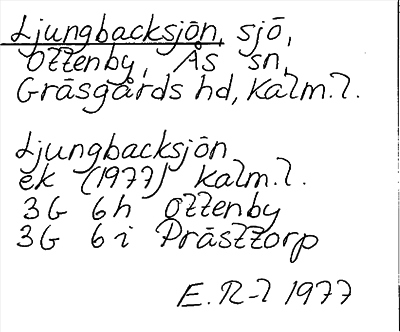 Ljungbacksjön, sjö,
Ottenby, Ås sn,
Gräsgårds hd, Kalm.l.
Ljungbacksjön
ek (1977) Kalm.l.
3G 6h Ottenby
3G 6i Prästtorp
E.R-l 1977